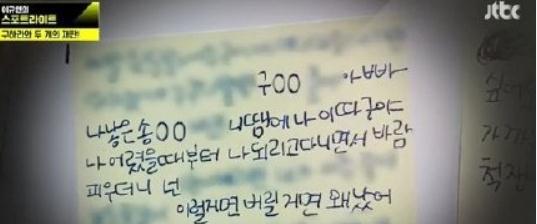 이규연의
스포트라이트
구하라와 두 개의 재판!
jtbc
구OO 아빠
나낳은 송OO 니땜에 나 이따구야
나 어렸을때부터 나 되리고다니면서 바람
피우더니 넌
이럴거면 버릴거면 왜 낳어